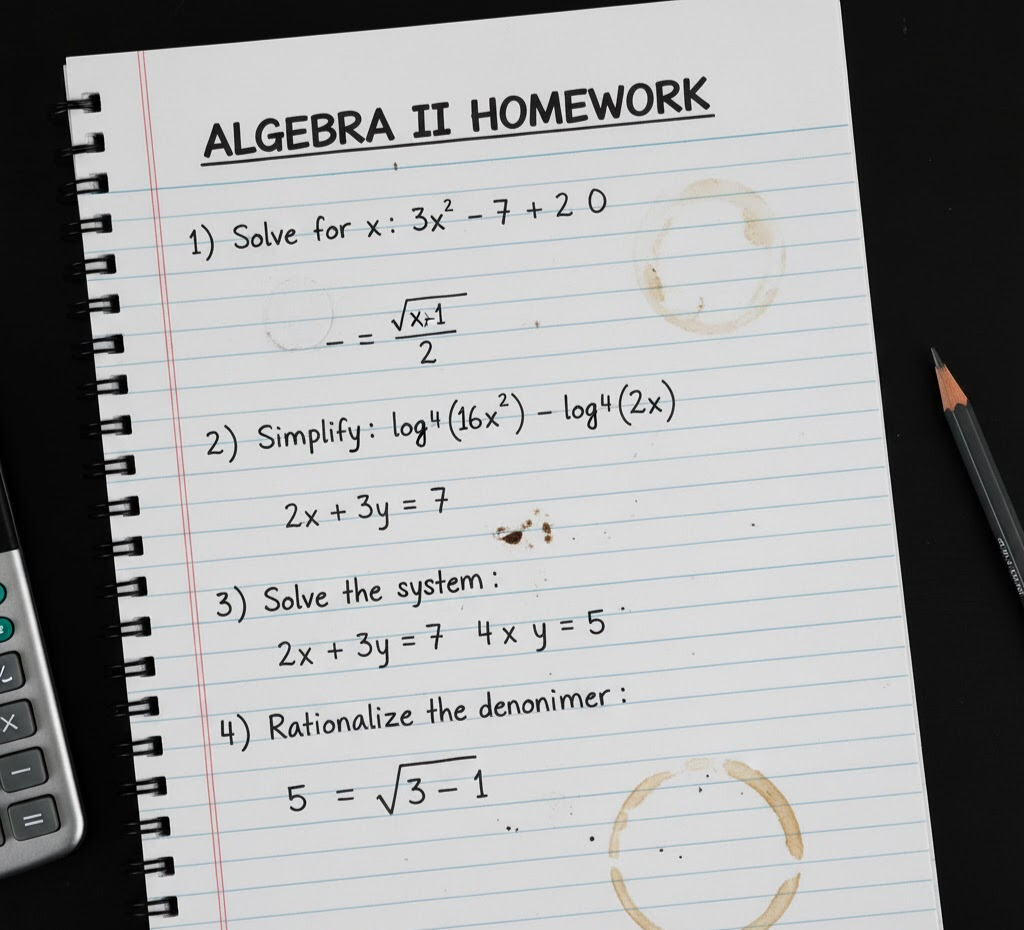 ALGEBRA II HOMEWORK
1) Solve for x: 3x² - 7 + 2 0
- = √(x-1) / 2
2) Simplify: log⁴(16x²) - log⁴(2x)
2x + 3y = 7
3) Solve the system:
2x + 3y = 7 4 x y = 5
4) Rationalize the denonimer:
5 = √(3 - 1)
×
-
=